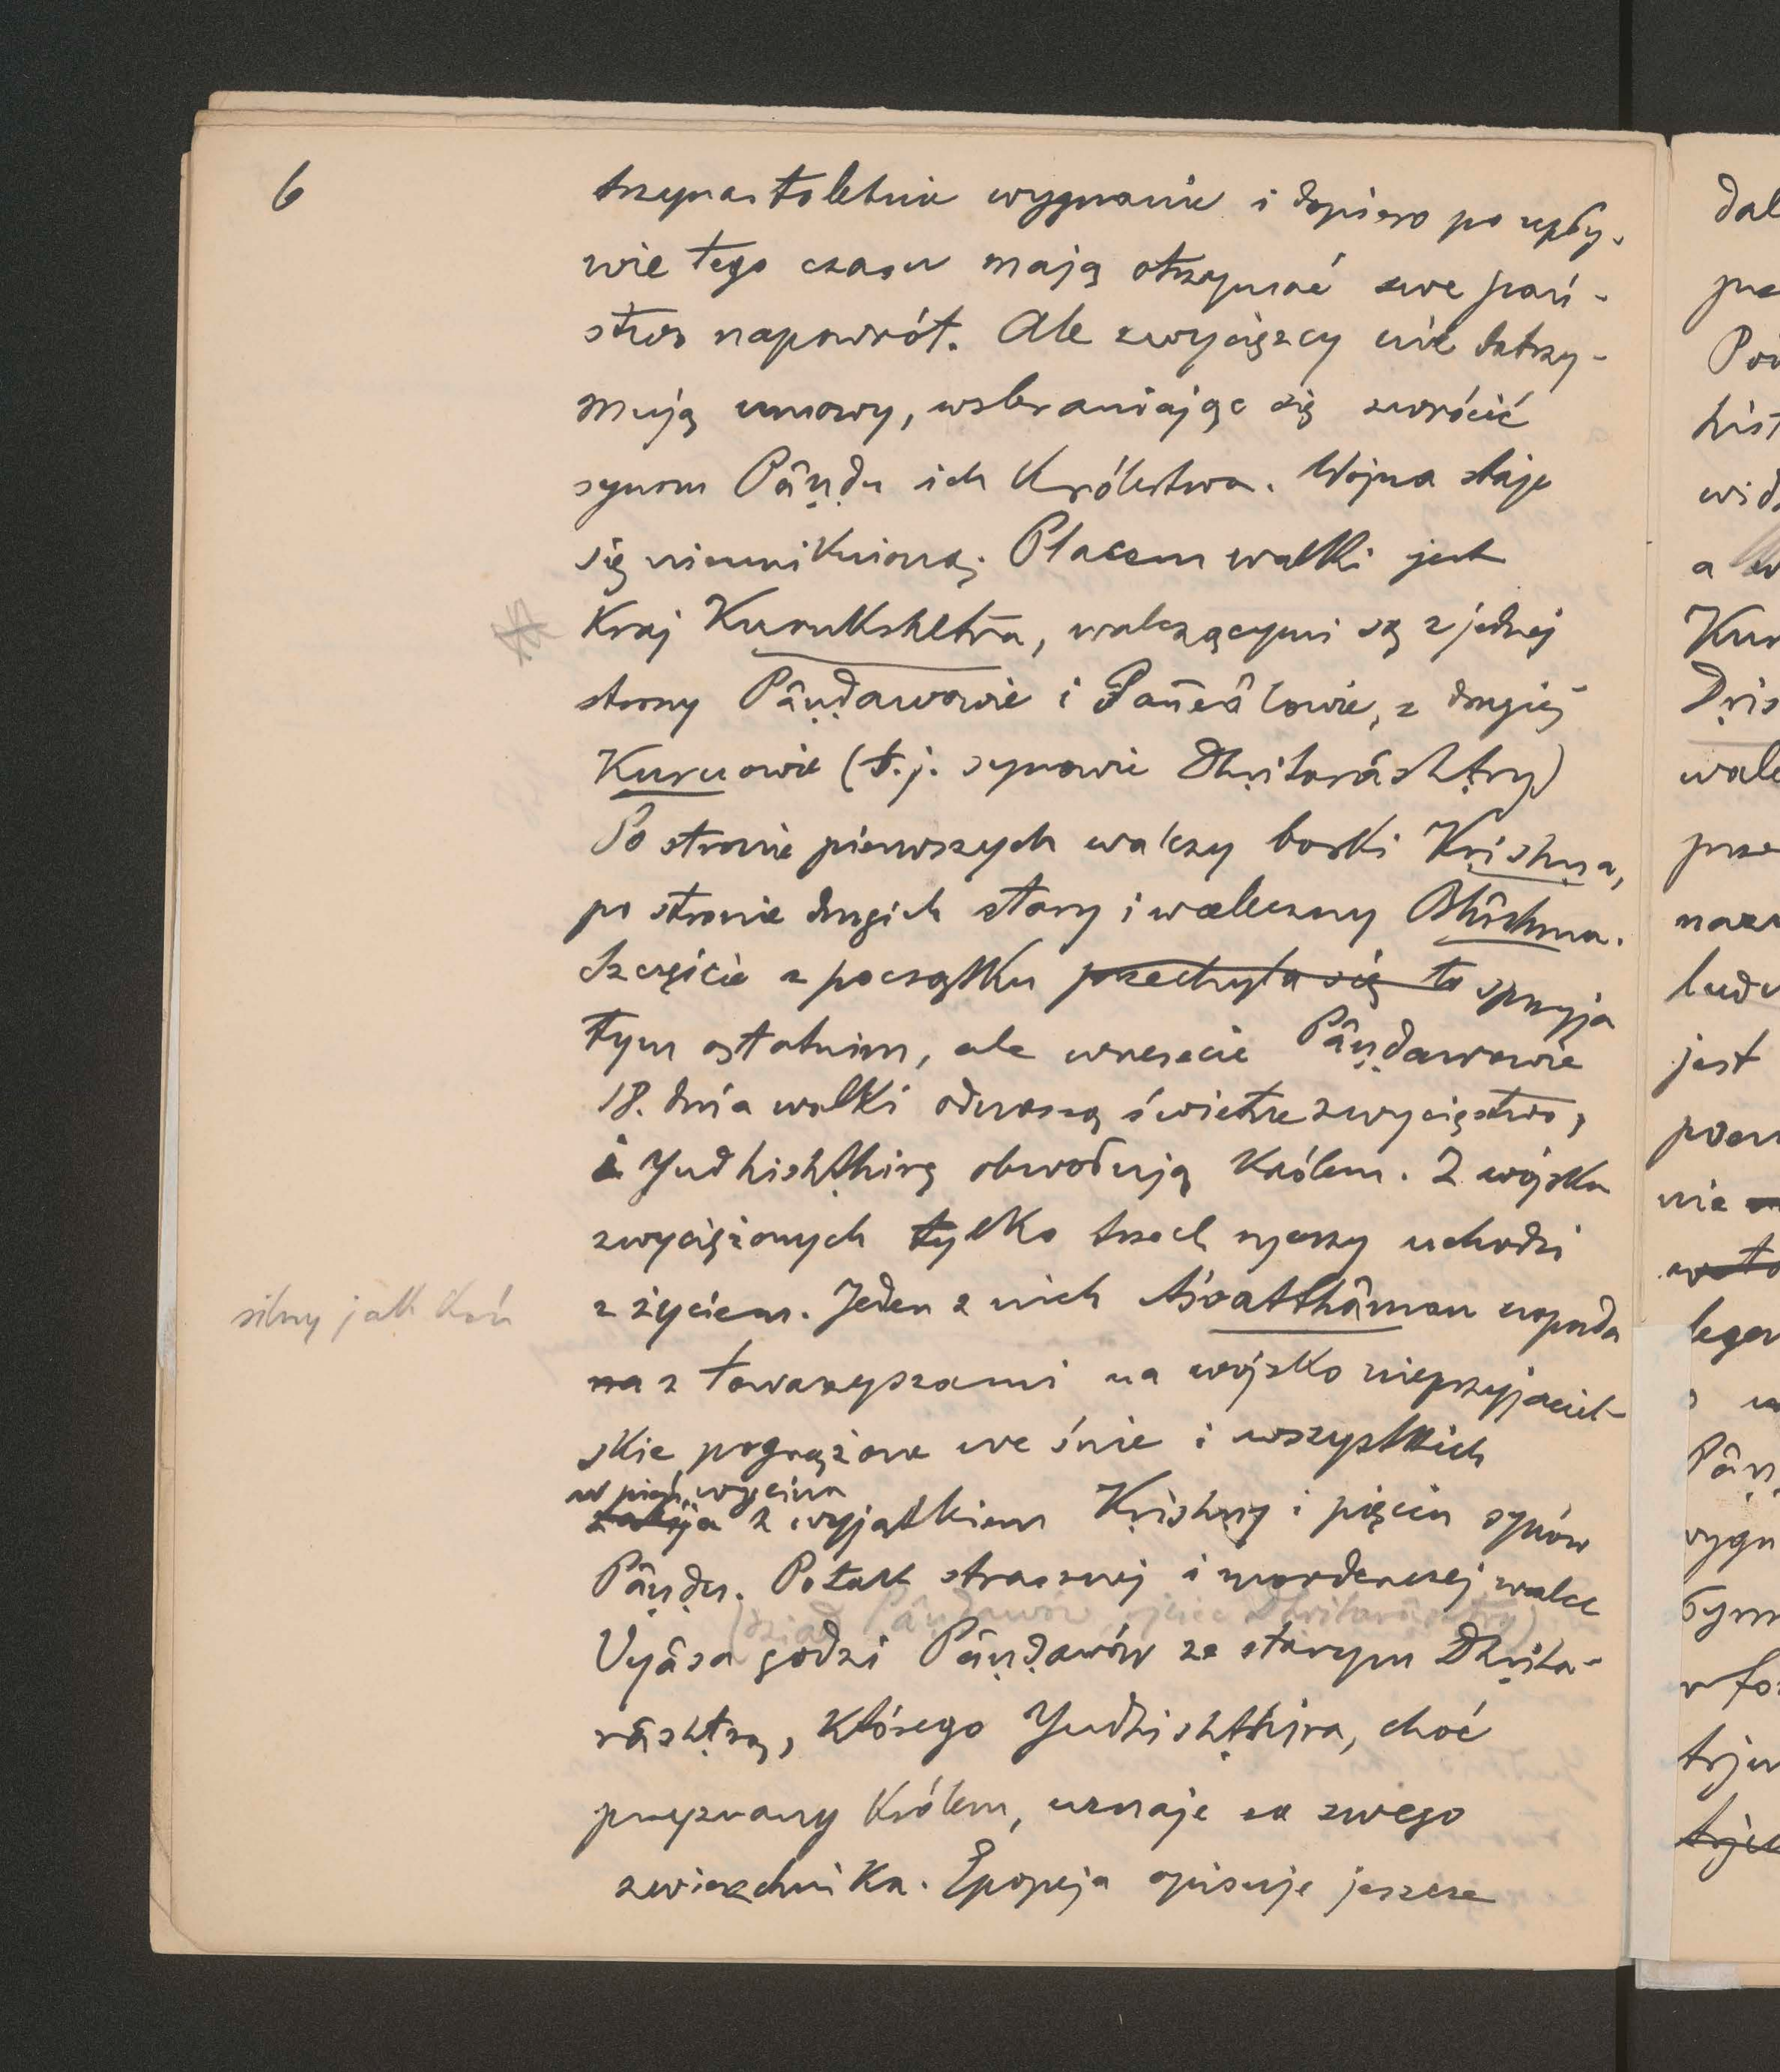 6
trzynastoletnie wygnanie i dopiero po upły-
wie tego czasu mają otrzymać swe pań-
stwo napowrót. Ale zwycięzcy nie dotrzy-
mują umowy, wzbraniając się zwrócić
synom Pâṇḍu ich Królestwa. Wojna staje
się nieuniknioną. Placem walki jest
Kraj Kurukshetra, walczącymi są z jednej
strony Pâṇḍawowie i Pañcâlowie, z drugiej
Kuruowie (t.j. synowie Dhṛitarâshṭry)
Po stronie pierwszych walczy boski Kṛishṇa,
po stronie drugich stary i waleczny Bhîshma.
Szczęście z początku przechyla się to sprzyja
tym ostatnim, ale wreszcie Pâṇḍawowie
18. dnia walki odnoszą świetne zwycięstwo,
i Yudhishṭhirę obwołują Królem. Z wojska
zwyciężonych tylko trzech rycerzy uchodzi
silny jak koń
z życiem. Jeden z nich Aśvatthâman napada
na z towarzyszami na wojsko nieprzyjaciel-
skie pogrążone we śnie i wszystkich
w pień wycina
zabija z wyjątkiem Kṛishṇy i pięciu synów
Pâṇḍu. Po tak strasznej i morderczej walce
(dziad Pâṇḍawów, ojciec Dhritarâshtry)
Vyâsa godzi Pâṇḍawów ze starym Dhṛita-
râshṭrą, którego Yudhishṭhira, choć
przezwany Królem, uznaje za swego
zwierzchnika. Epopeja opisuje jeszcze